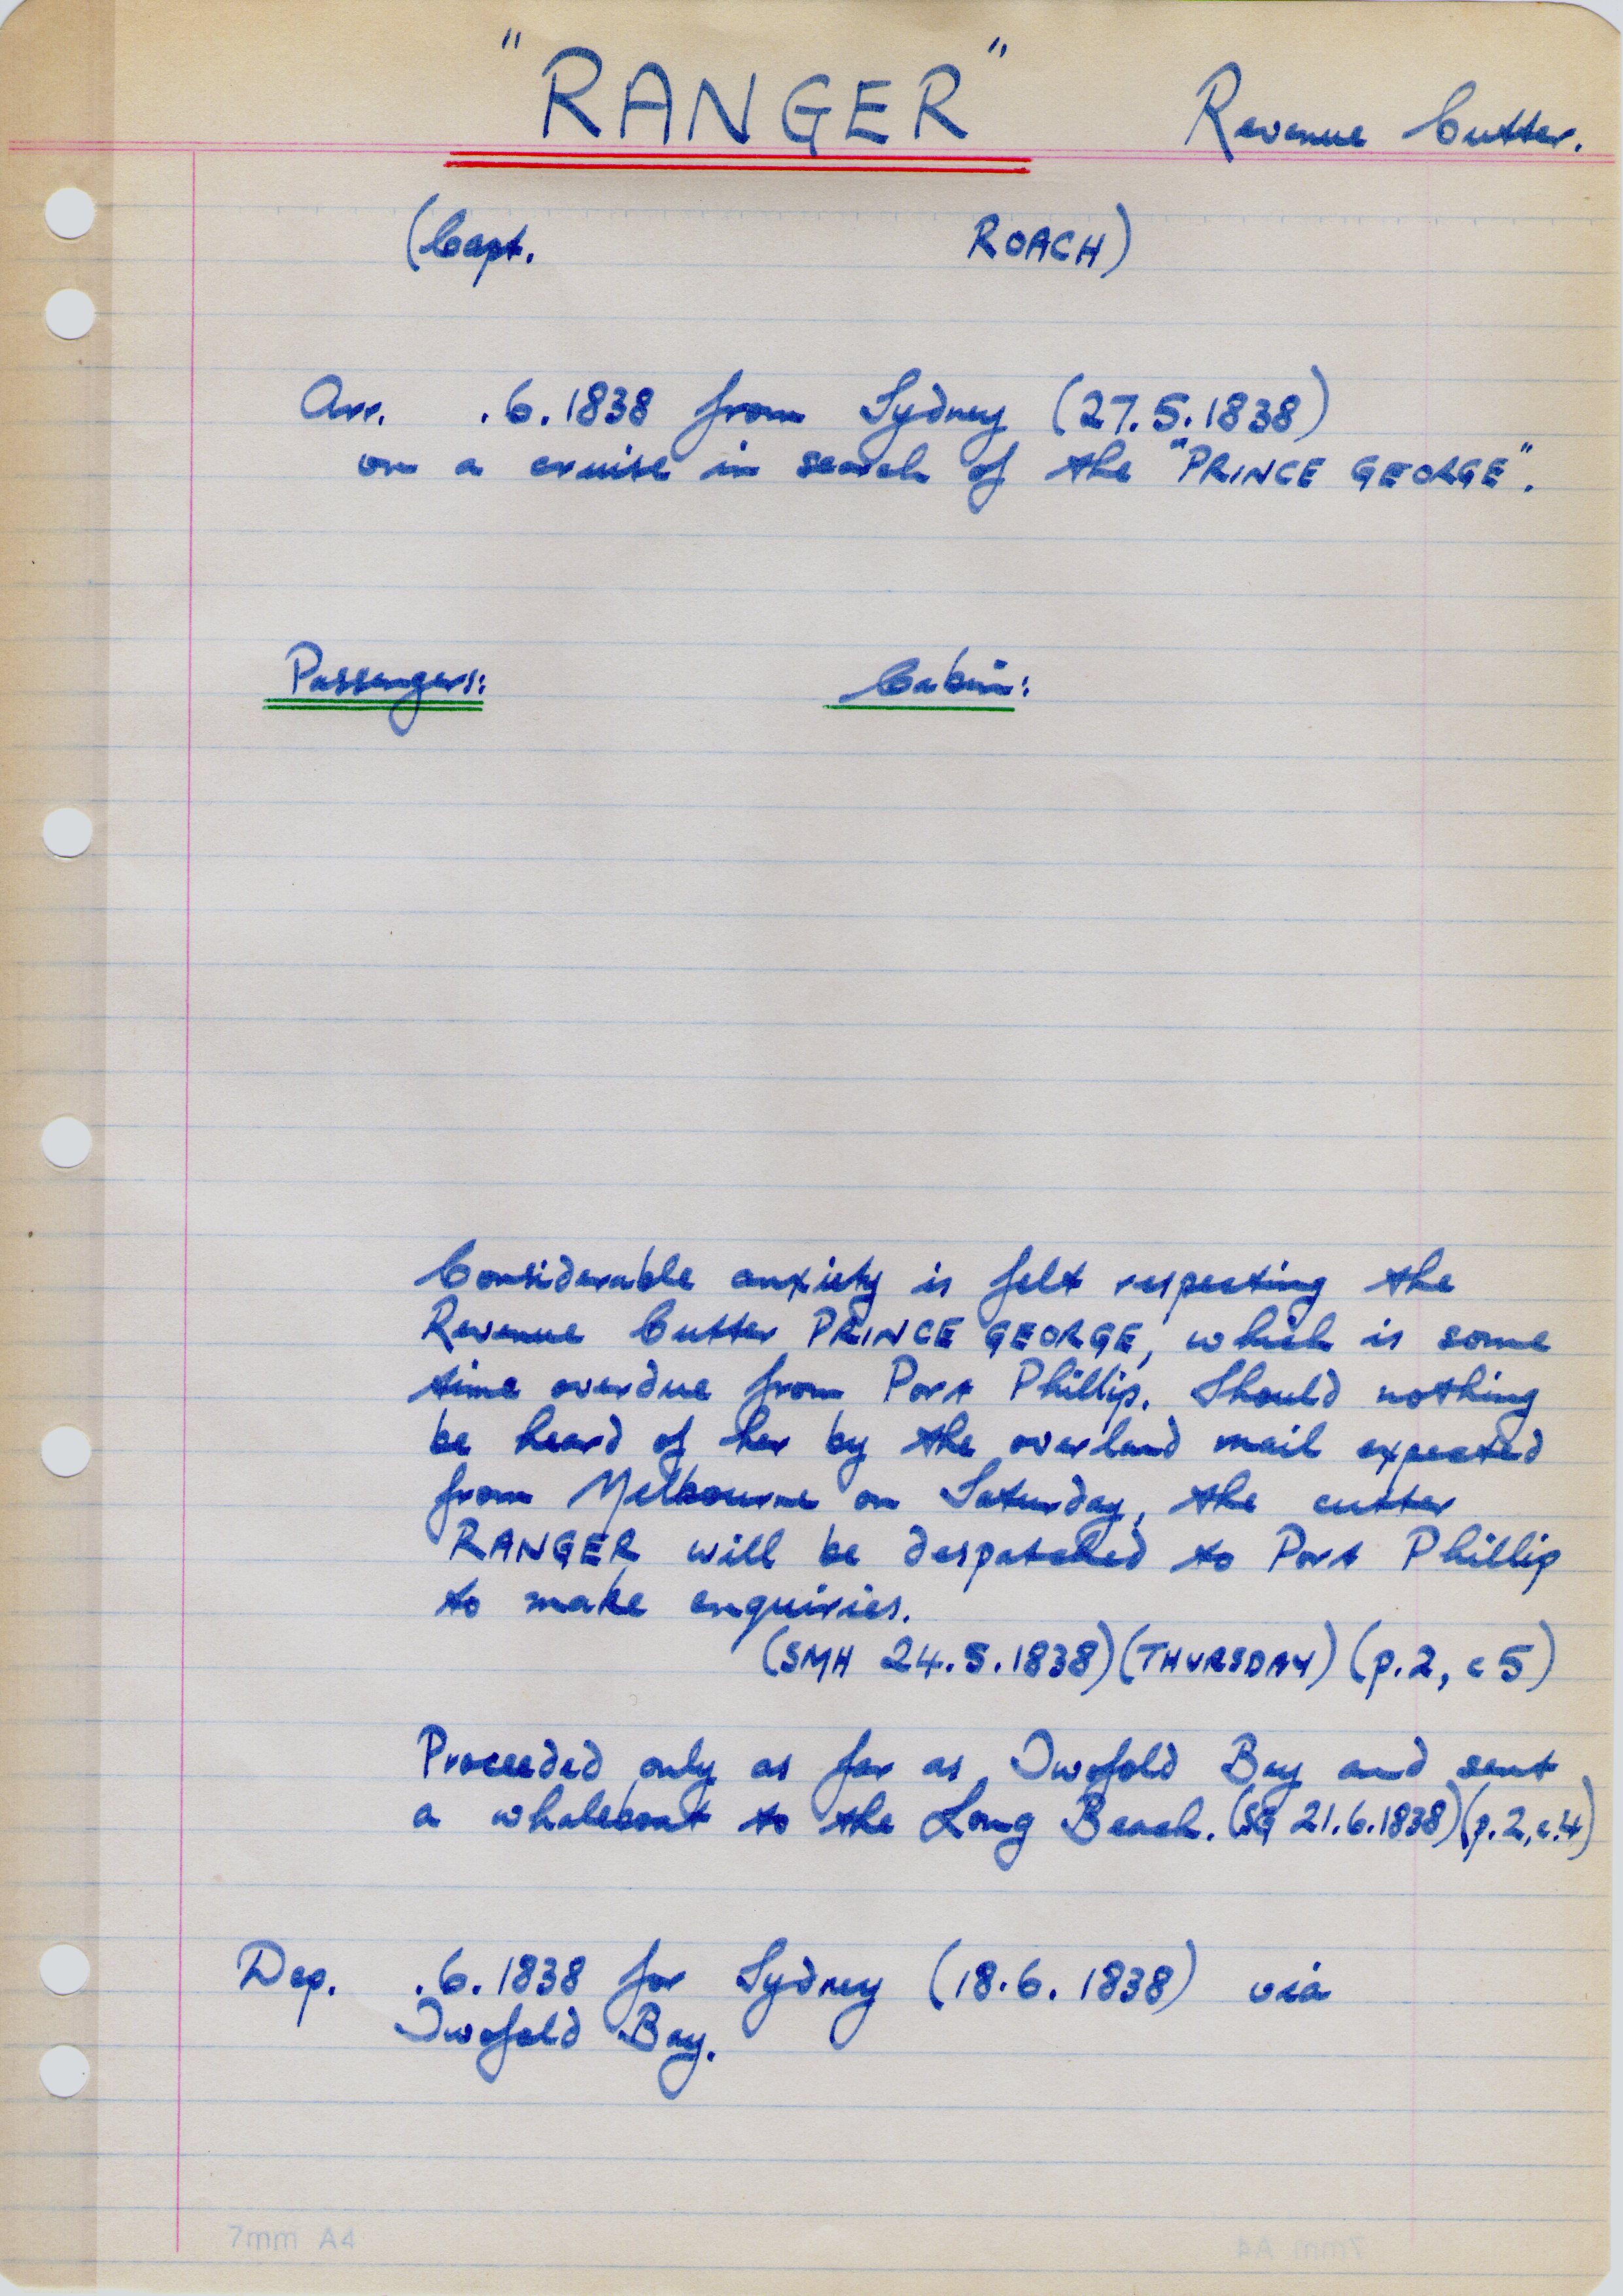 "RANGER" Revenue Cutter.
(Capt. ROACH)
Arr. .6.1838 from Sydney (27.5.1838)
on a cruise in search of the "PRINCE GEORGE".
Passengers: Cabin:
Considerable anxiety is felt respecting the
Revenue Cutter PRINCE GEORGE, which is some
time overdue from Port Phillip. Should nothing
be heard of her by the overland mail expected
from Melbourne on Saturday, the cutter
RANGER will be despatched to Port Phillip
to make enquiries.
(SMH 24.5.1838)(THURSDAY)(p.2, c5)
Proceeded only as far as Twofold Bay and sent
a whaleboat to the Long Beach. (SG 21.6.1838)(p.2,c.4)
Dep. .6.1838 for Sydney (18.6.1838) via
Twofold Bay.
7mm A4